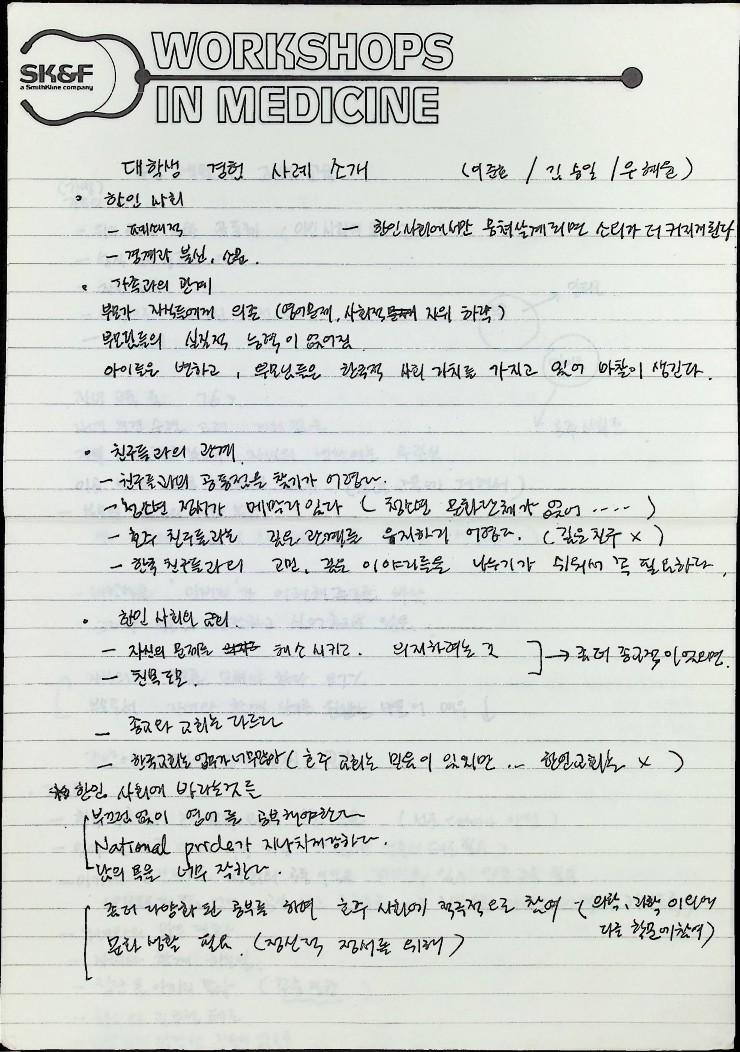 SK&F
a SmithKline company
WORKSHOPS
IN MEDICINE
대학생 경험 사례 소개 (이준호 / 김승일 / 우혜윤)
• 한인 사회
- 폐쇄적 - 한인사회에서만 뭉쳐살게되면 소리가 더 커지게 된다
- 경계와 불신, 소문.
• 가족과의 관계
부모가 자식들에게 의존 (영어문제, 사회적 지위 하락)
부모님들의 실질적 능력이 없어짐
아이들은 변하고, 부모님들은 한국적 사회 가치를 가지고 있어 마찰이 생긴다.
• 친구들과의 관계
- 친구들과의 공통점을 찾기가 어렵다.
- 청소년 정서가 메말라있다 (청소년 문화단체가 없어 ....)
- 호주 친구들과는 깊은 관계를 유지하기 어렵다. (깊은친구 x)
- 한국 친구들과의 고민, 깊은 이야기들을 나누기가 쉬워서 꼭 필요하다.
• 한인 사회의 교회
- 자신의 문제를 해소시키고. 의지하려는 곳 ] → 좀더 종교적이었으면.
- 친목도모.
- 종교와 교회는 다르다
- 한국교회는 업무가 너무많아 (호주 교회는 믿음이 있지만 .. 한인교회는 x)
* 한인 사회에 바라는것은
부끄럼없이 영어를 공부해야한다
National pride가 지나치게강하다.
남의 욕을 너무 잘한다.
좀더 다양화 된 공부를 하며 호주 사회에 적극적으로 참여 (의학, 과학 이외에
다른 학문에참여)
문화 생활 필요. (정신적 정서를 위해)